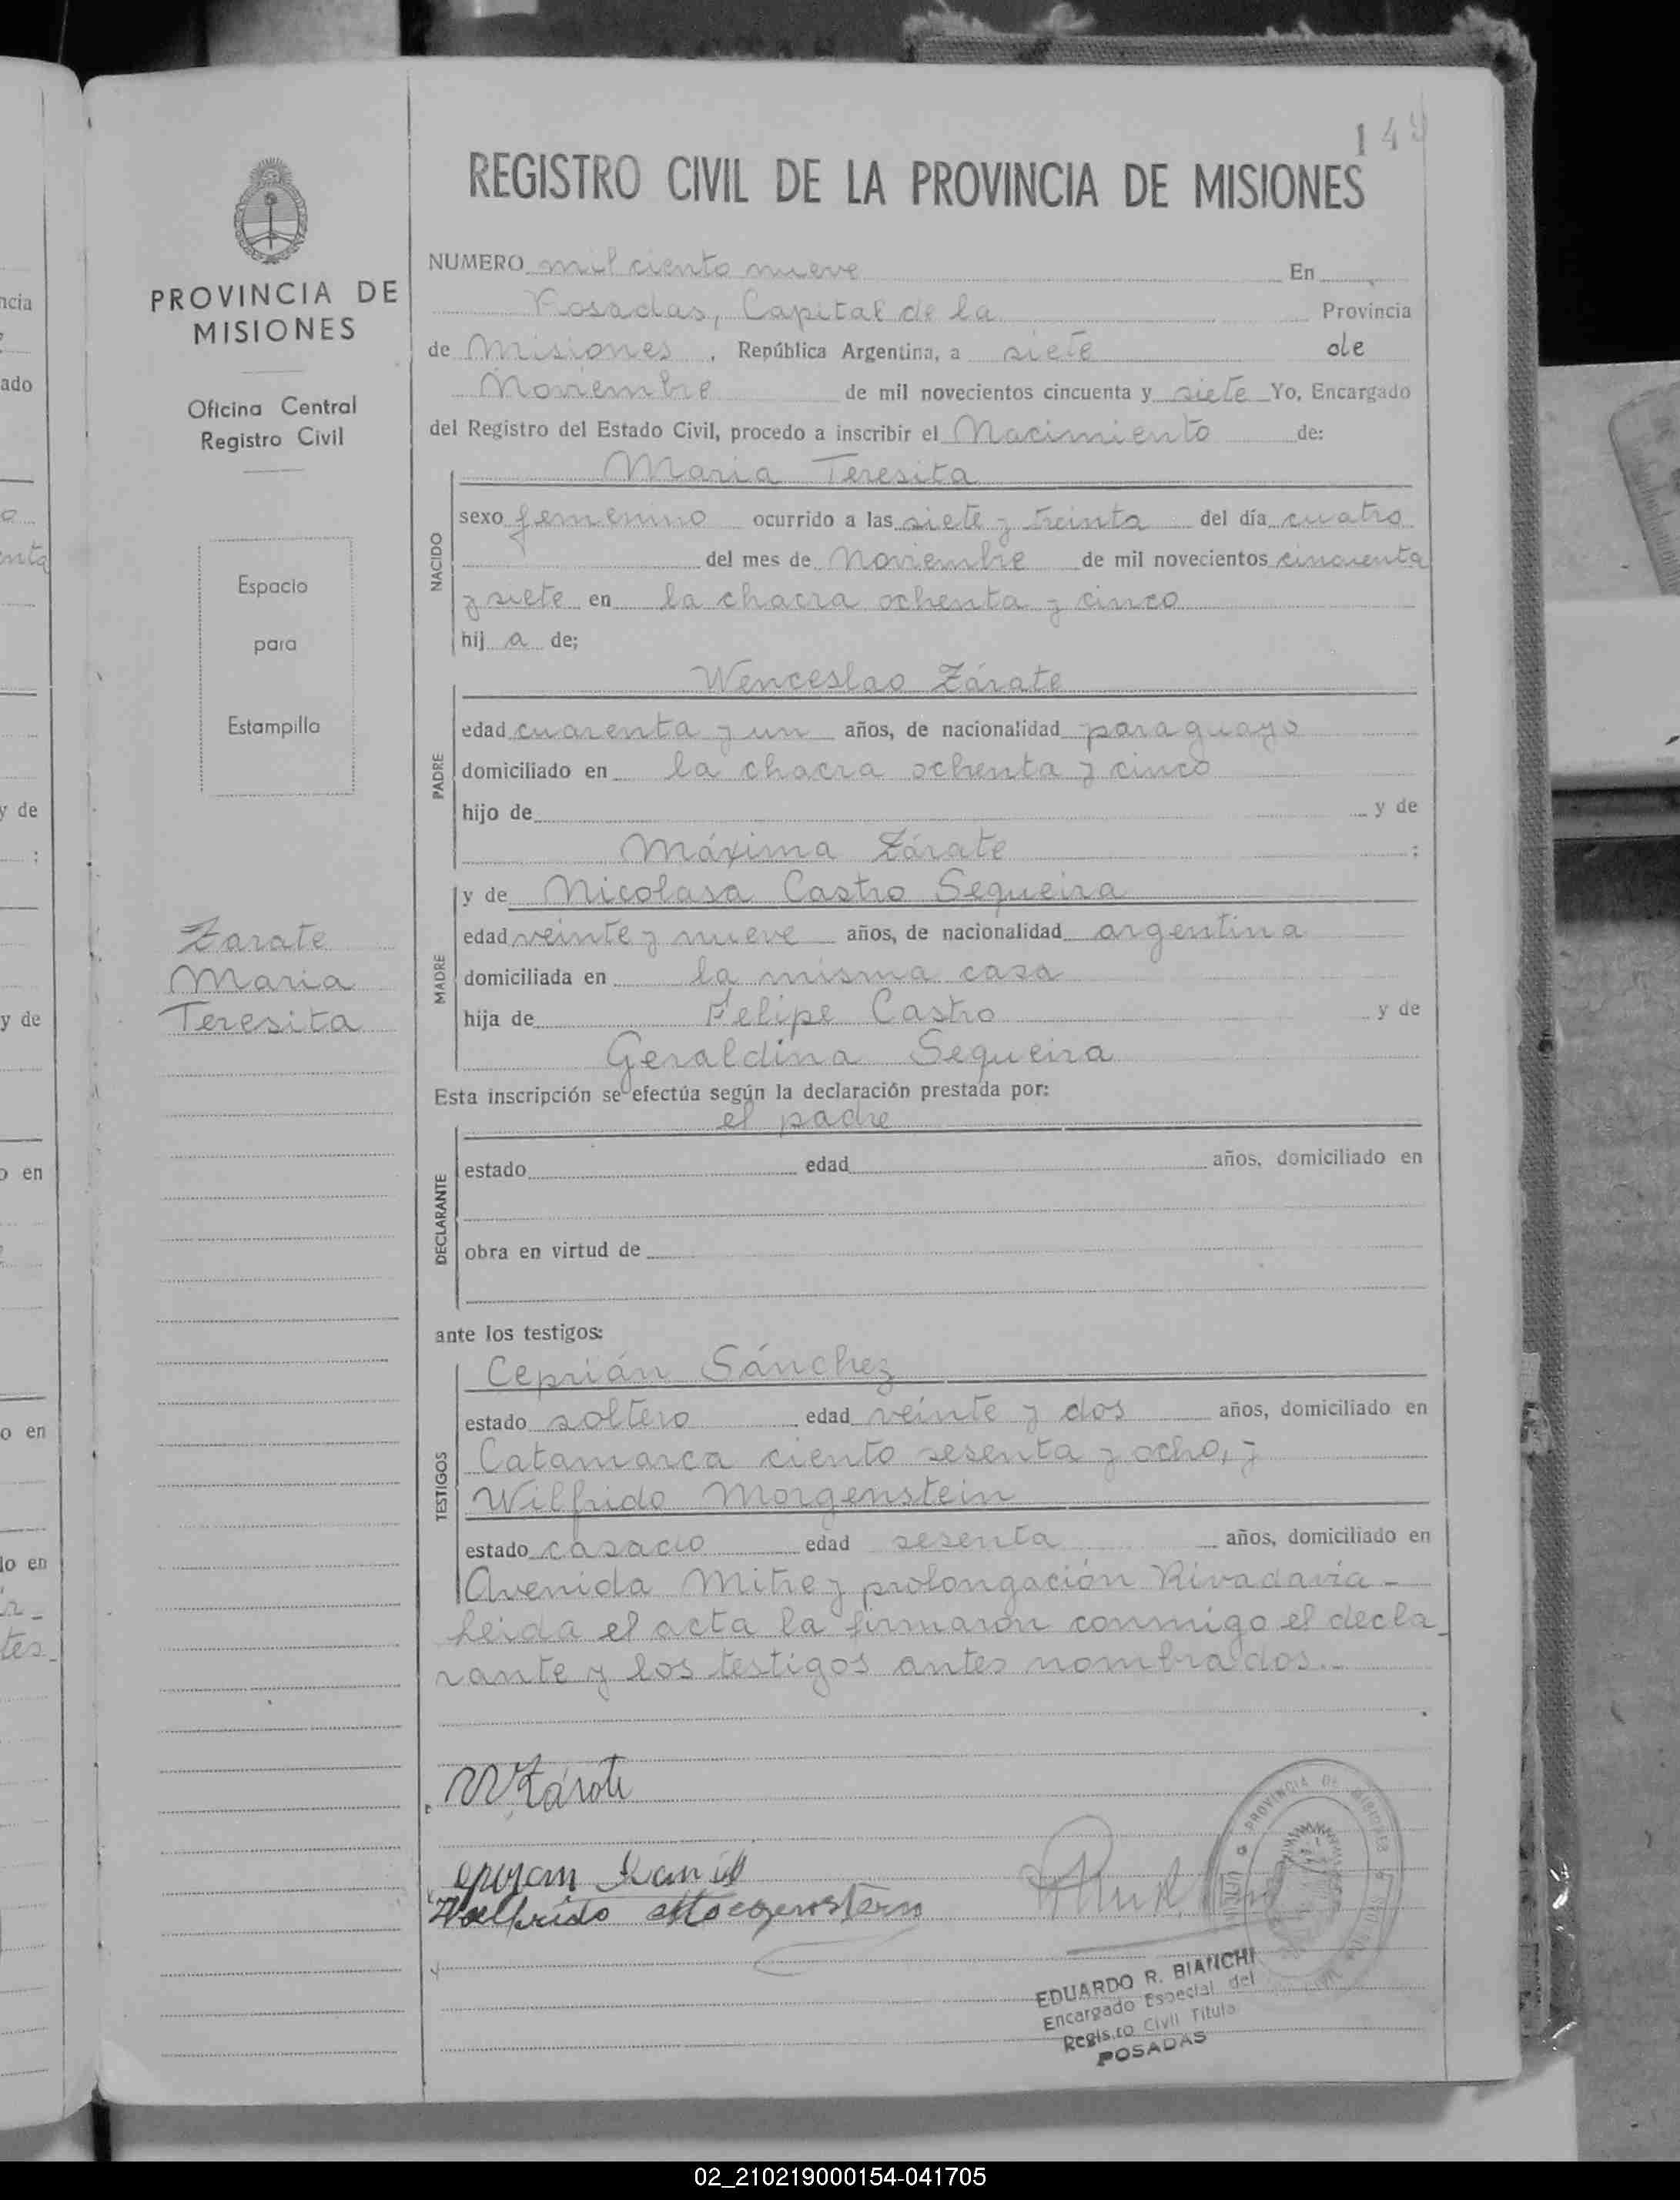 149
REGISTRO CIVIL DE LA PROVINCIA DE MISIONES
PROVINCIA DE
MISIONES
Oficina Central
Registro Civil
Espacio
para
Estampilla
Zarate
Maria
Teresita
NUMERO mil ciento nueve En
Posadas, Capital de la Provincia
de Misiones, República Argentina, a siete de
Noviembre de mil novecientos cincuenta y siete Yo, Encargado
del Registro del Estado Civil, procedo a inscribir el Nacimiento de:
Maria Teresita
NACIDO
sexo femenino ocurrido a las siete y treinta del día cuatro
del mes de Noviembre de mil novecientos cincuenta
y siete en la chacra ochenta y cinco
hij a de;
Wenceslao Zárate
PADRE
edad cuarenta y un años, de nacionalidad paraguayo
domiciliado en la chacra ochenta y cinco
hijo de y de
Máxima Zárate ;
y de Nicolasa Castro Sequeira
MADRE
edad veinte y nueve años, de nacionalidad argentina
domiciliada en la misma casa
hija de Felipe Castro y de
Geraldina Sequeira
Esta inscripción se efectúa según la declaración prestada por:
el padre
DECLARANTE
estado edad años, domiciliado en
obra en virtud de
ante los testigos:
Ceprián Sánchez
TESTIGOS
estado soltero edad veinte y dos años, domiciliado en
Catamarca ciento sesenta y ocho, y
Wilfrido Morgenstein
estado casado edad sesenta años, domiciliado en
Avenida Mitre y prolongación Rivadavia -
Leida el acta la firmaron conmigo el decla_
rante y los testigos antes nombrados.-
W Zárate
PROVINCIA DE MISIONES
EDUARDO R. BIANCHI
Encargado Especial del
Registro Civil Titula
POSADAS
02_210219000154-041705